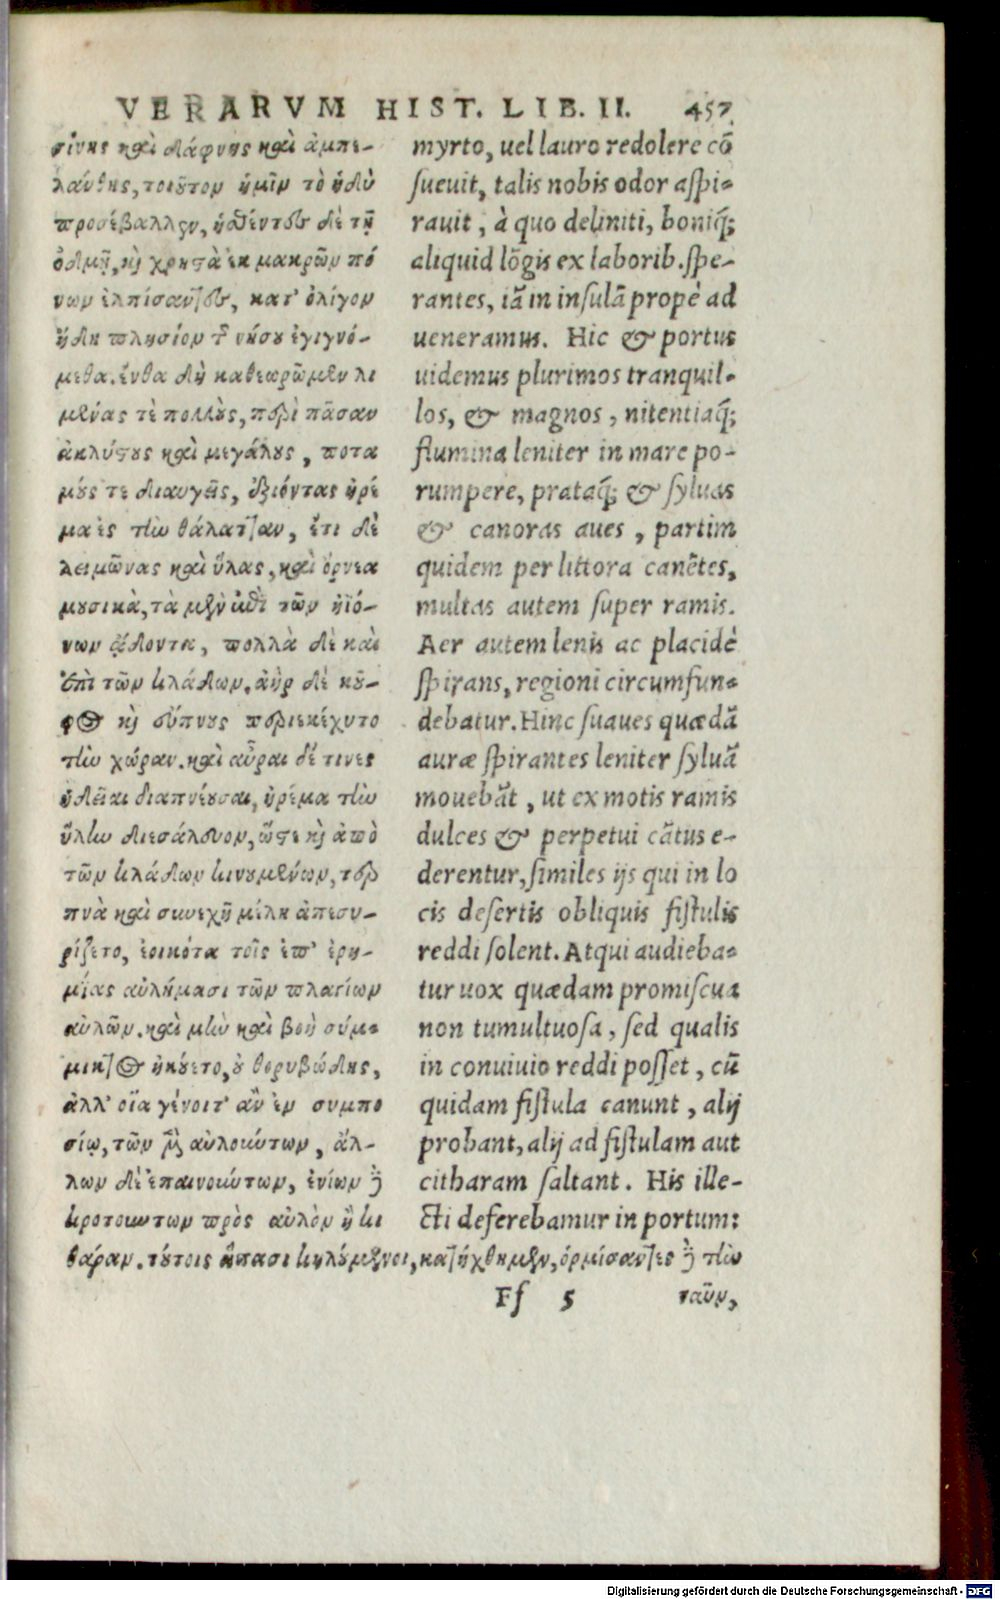 VERARVM HIST. LIB. II. 457
σίνης καὶ δάφνης καὶ ἀμπε-
λάνθης, τοιοῦτον ἡμῖν τὸ ἡδὺ
προσέβαλλεν, ἡσθέντες δὲ τῇ
ὀδμῇ, καὶ χρηστὰ ἐκ μακρῶν πό
νων ἐλπίσαντες, κατ' ὀλίγον
ἤδη πλησίον τῆς νήσου ἐγιγνό-
μεθα. ἔνθα δὴ καθεωρῶμεν λι
μένας τὲ πολλοὺς, περὶ πᾶσαν
ἀκλύστους καὶ μεγάλους, ποτα
μούς τε διαυγεῖς, ἐξιόντας ἠρέ
μα ἐς τὴν θάλατταν, ἔτι δὲ
λειμῶνας καὶ ὕλας, καὶ ὄρνεα
μουσικὰ, τὰ μὲν ἐπὶ τῶν ἠϊό-
νων ᾄδοντα, πολλὰ δὲ καὶ
ἐπὶ τῶν κλάδων. ἀὴρ δὲ κοῦ-
φος καὶ εὔπνους περιεκέχυτο
τὴν χώραν. καὶ αὖραι δέ τινες
ἡδεῖαι διαπνέουσαι, ἠρέμα τὴν
ὕλην διεσάλευον, ὥστε καὶ ἀπὸ
τῶν κλάδων κινουμένων, τερ
πνὰ καὶ συνεχῆ μέλη ἀπεσυ-
ρίζετο, ἐοικότα τοῖς ἐπ' ἐρη-
μίας αὐλήμασι τῶν πλαγίων
αὐλῶν. καὶ μὴν καὶ βοὴ σύμ-
μικτος ἠκούετο, οὐ θορυβώδης,
ἀλλ' οἵα γένοιτ' ἂν ἐν συμπο
σίῳ, τῶν μὲν αὐλούντων, ἄλ-
λων δὲ ἐπαινούντων, ἐνίων δὲ
κροτούντων πρὸς αὐλὸν ἢ κι
θάραν. τούτοις ἅπασι κηλούμενοι, κατήχθημεν, ὁρμίσαντες δὲ τὴν
myrto, uel lauro redolere cō
sueuit, talis nobis odor aspi-
rauit, à quo deliniti, boniq́;
aliquid lōgis ex laborib. spe-
rantes, iā in insulā propè ad
ueneramus. Hic & portus
uidemus plurimos tranquil-
los, & magnos, nitentiaq́;
flumina leniter in mare po-
rumpere, prataq́; & syluas
& canoras aues, partim
quidem per littora canētes,
multas autem super ramis.
Aer autem lenis ac placidè
spirans, regioni circumfun-
debatur. Hinc suaues quædā
auræ spirantes leniter syluā
mouebāt, ut ex motis ramis
dulces & perpetui cātus e-
derentur, similes ijs qui in lo
cis desertis obliquis fistulis
reddi solent. Atqui audieba-
tur uox quædam promiscua
non tumultuosa, sed qualis
in conuiuio reddi posset, cū
quidam fistula canunt, alij
probant, alij ad fistulam aut
citharam saltant. His ille-
cti deferebamur in portum:
Ff 5 ναῦν,
Digitalisierung gefördert durch die Deutsche Forschungsgemeinschaft - DFG